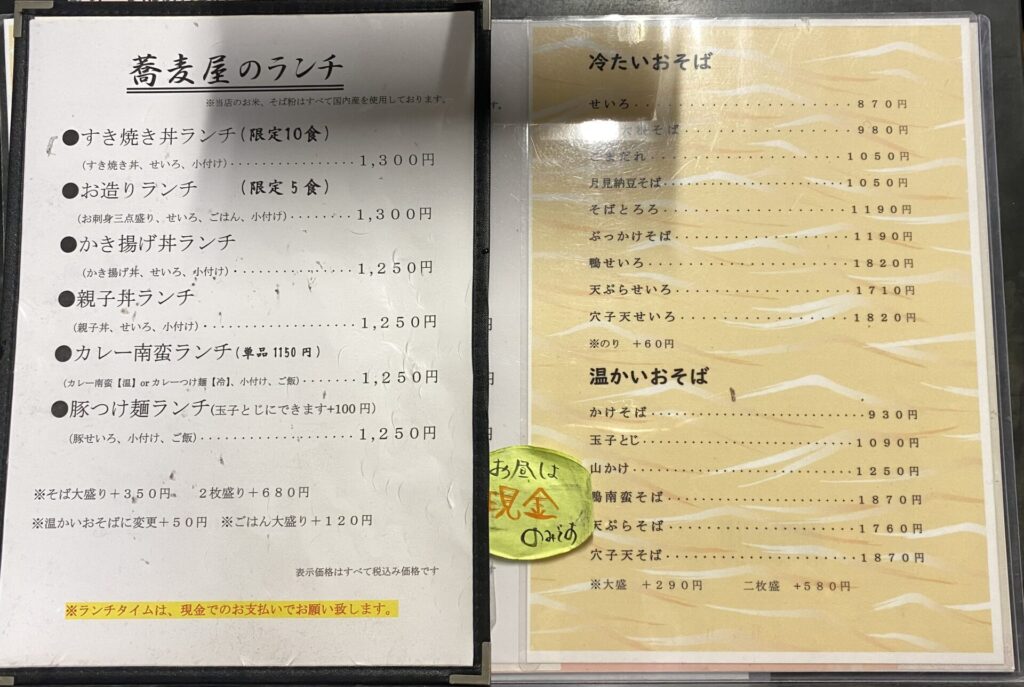 蕎麦屋のランチ
※当店のお米、そば粉はすべて国内産を使用しております。
●すき焼き丼ランチ(限定10食)
(すき焼き丼、せいろ、小付け)・・・・・・・・・・・・・・・・1,300円
●お造りランチ (限定5食)
(お刺身三点盛り、せいろ、ごはん、小付け)・・・・・・・・1,300円
●かき揚げ丼ランチ
(かき揚げ丼、せいろ、小付け)・・・・・・・・・・・・・・・・1,250円
●親子丼ランチ
(親子丼、せいろ、小付け)・・・・・・・・・・・・・・・・・・・・1,250円
●カレー南蛮ランチ(単品1150円)
(カレー南蛮【温】orカレーつけ麺【冷】、小付け、ご飯)・・・・・・・・1,250円
●豚つけ麺ランチ(玉子とじにできます+100円)
(豚せいろ、小付け、ご飯)・・・・・・・・・・・・・・・・・・・・1,250円
※そば大盛り+350円 2枚盛り+680円
※温かいおそばに変更+50円 ※ごはん大盛り+120円
表示価格はすべて税込み価格です
※ランチタイムは、現金でのお支払いでお願い致します。
す。
円
円
円
お昼は
現金
のみです
冷たいおそば
せいろ・・・・・・・・・・・・・・・・・・・・870円
そば・・・・・・・・・・・・・・・・980円
ごまだれ・・・・・・・・・・・・・・・・・・1050円
月見納豆そば・・・・・・・・・・・・・・1050円
そばとろろ・・・・・・・・・・・・・・・・1190円
ぶっかけそば・・・・・・・・・・・・・・1190円
鴨せいろ・・・・・・・・・・・・・・・・・・1820円
天ぷらせいろ・・・・・・・・・・・・・・1710円
穴子天せいろ・・・・・・・・・・・・・・1820円
※のり +60円
温かいおそば
かけそば・・・・・・・・・・・・・・・・・・930円
玉子とじ・・・・・・・・・・・・・・・・・・1090円
山かけ・・・・・・・・・・・・・・・・・・・・1250円
鴨南蛮そば・・・・・・・・・・・・・・・・1870円
天ぷらそば・・・・・・・・・・・・・・・・1760円
穴子天そば・・・・・・・・・・・・・・・・1870円
※大盛 +290円 二枚盛 +580円